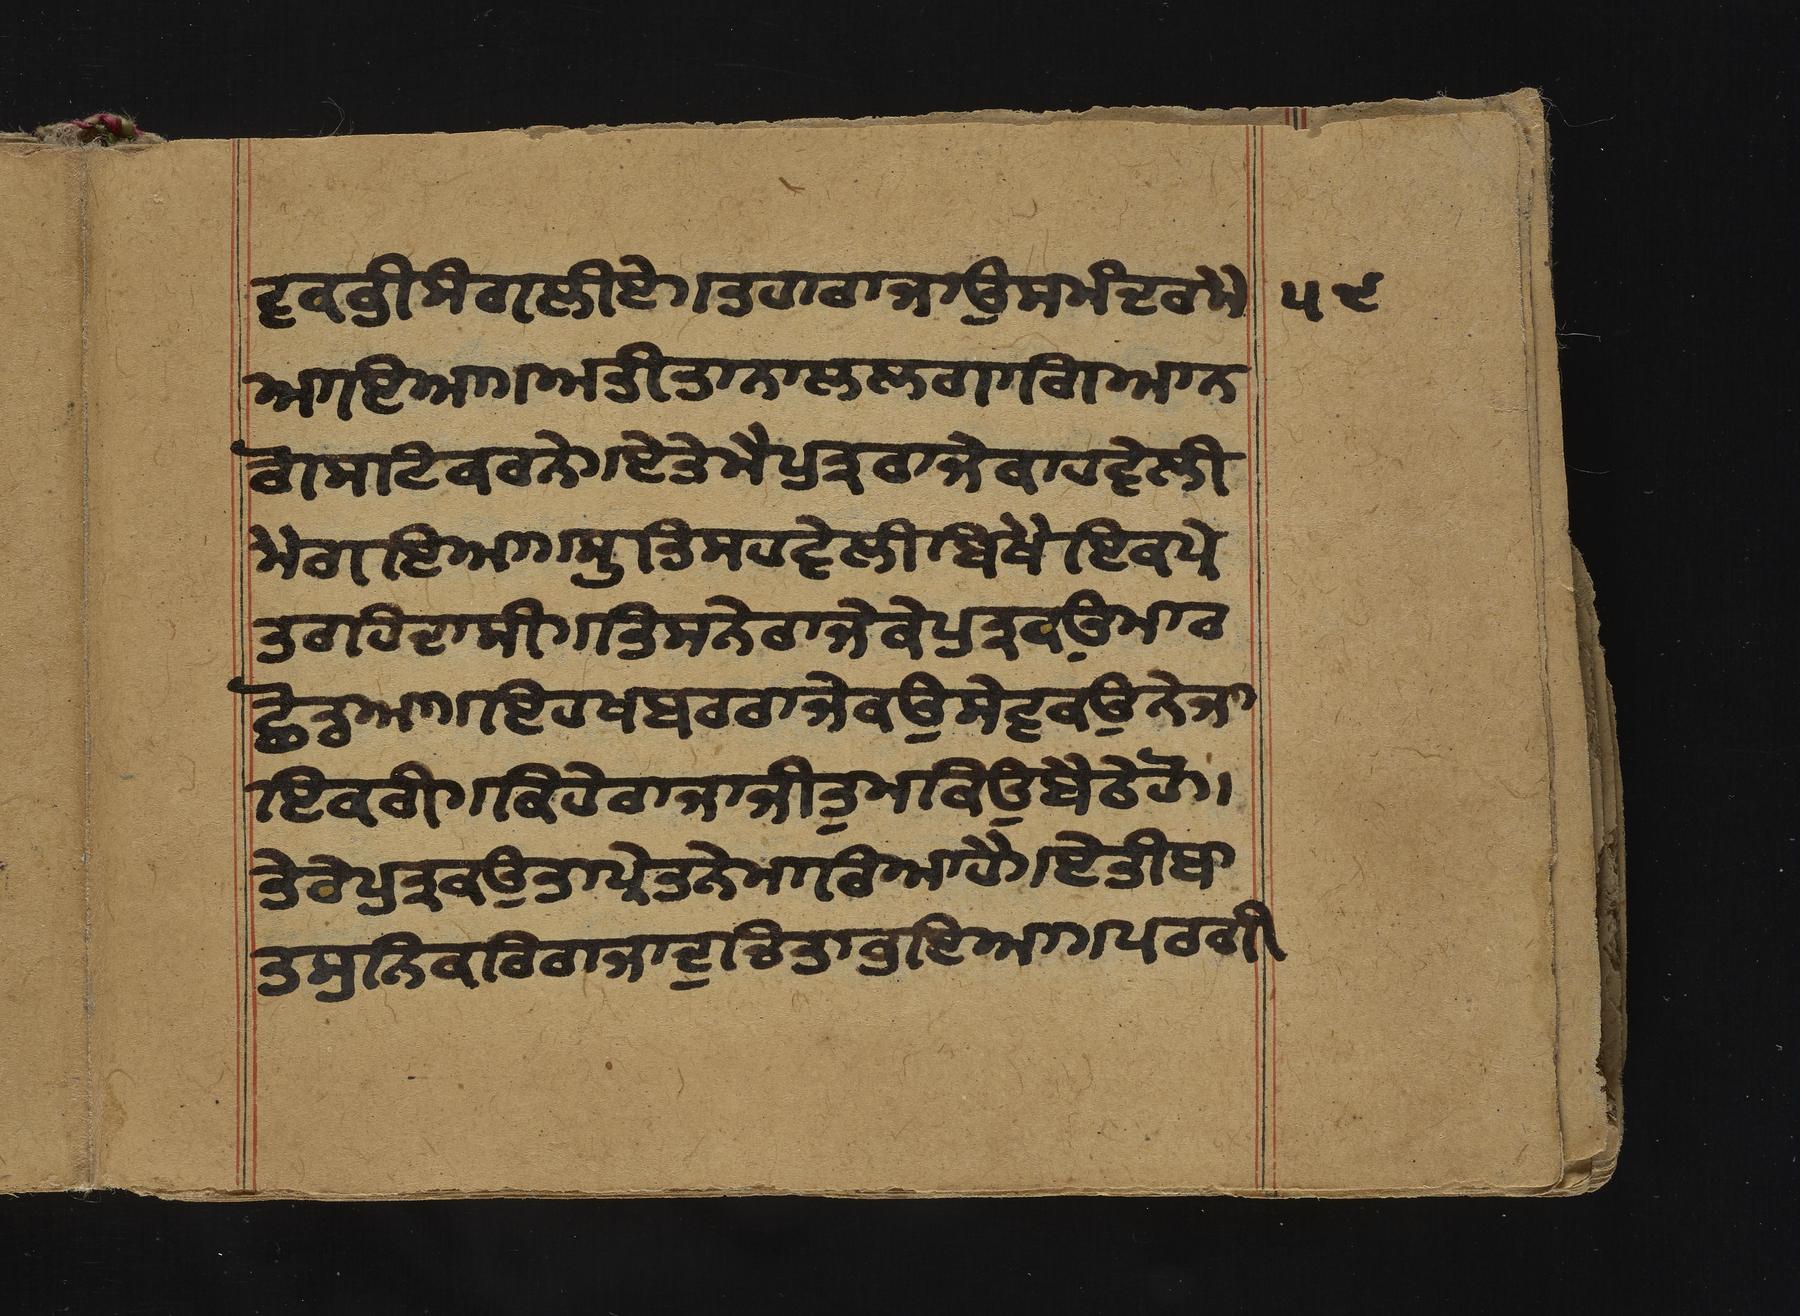 ਦ੍ਰਕਤੀਸੰਗਲੀਏ।ਤਹਾਰਾਜਾਉਸਮੰਦਰਮੈ ੫੯
ਆਇਆ।ਅਤੀਤਾਨਾਲਲਗਾਗਿਆਨ
ਗੋਸਟਿਕਰਨੇ।ਏਤੇਮੈਪੁਤ੍ਰਰਾਜੇਕਾਹਵੇਲੀ
ਮੈਗਇਆ।ਸੁਤਿਸਹਵੇਲੀਬਿਖੈਇਕਪ੍ਰੇ
ਤਰਹਿਦਾਸੀ।ਤਿਸਨੇਰਾਜੇਕੇਪੁਤ੍ਰਕਉਮਾਰ
ਛੋਡੁਆ।ਇਹਖਬਰਰਾਜੇਕਉਸੇਵਕਉਨੇਜਾ
ਇਕਰੀ।ਕਿਹੇਰਾਜਾਜੀਤੁਮਕਿਉਬੈਠੇਹੋ।
ਤੇਰੇਪੁਤ੍ਰਕਉਤਾਪ੍ਰੇਤਨੇਮਾਰਿਆਹੈ।ਏਤੀਬਾ
ਤਸੁਨਿਕਰਿਰਾਜਾਦੁਚਿਤਾਹੁਇਆ।ਪਰਗੀ